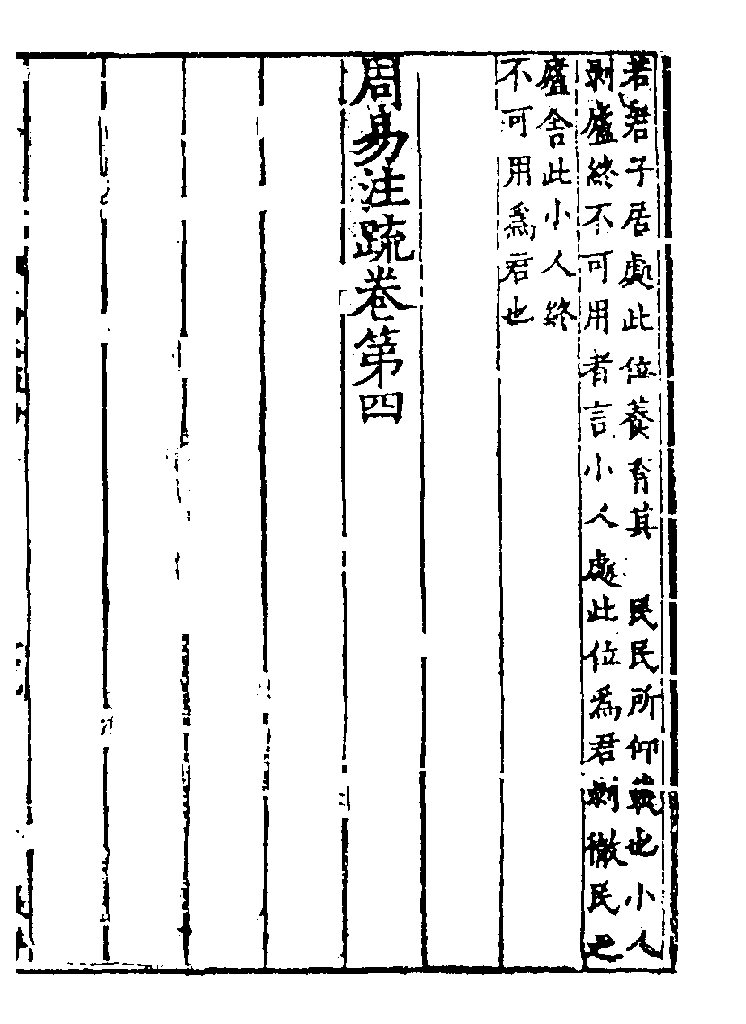 若君子居處此位養育其　民民所仰戴也小人
剥廬終不可用者言小人處此位爲君剥徹民之
廬舍此小人終
不可用爲君也
周易注疏卷第四